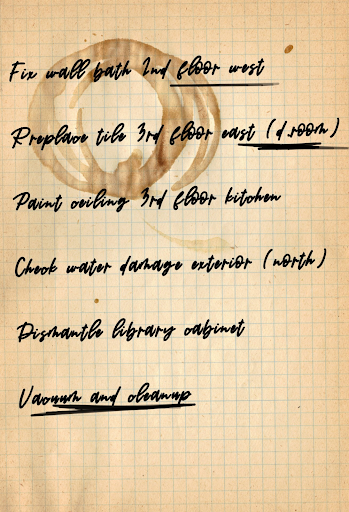 Fix wall bath 2nd floor west
Rreplace tile 3rd floor east (d.room)
Paint ceiling 3rd floor kitchen
Check water damage exterior (north)
Dismantle library cabinet
Vacuum and cleanup